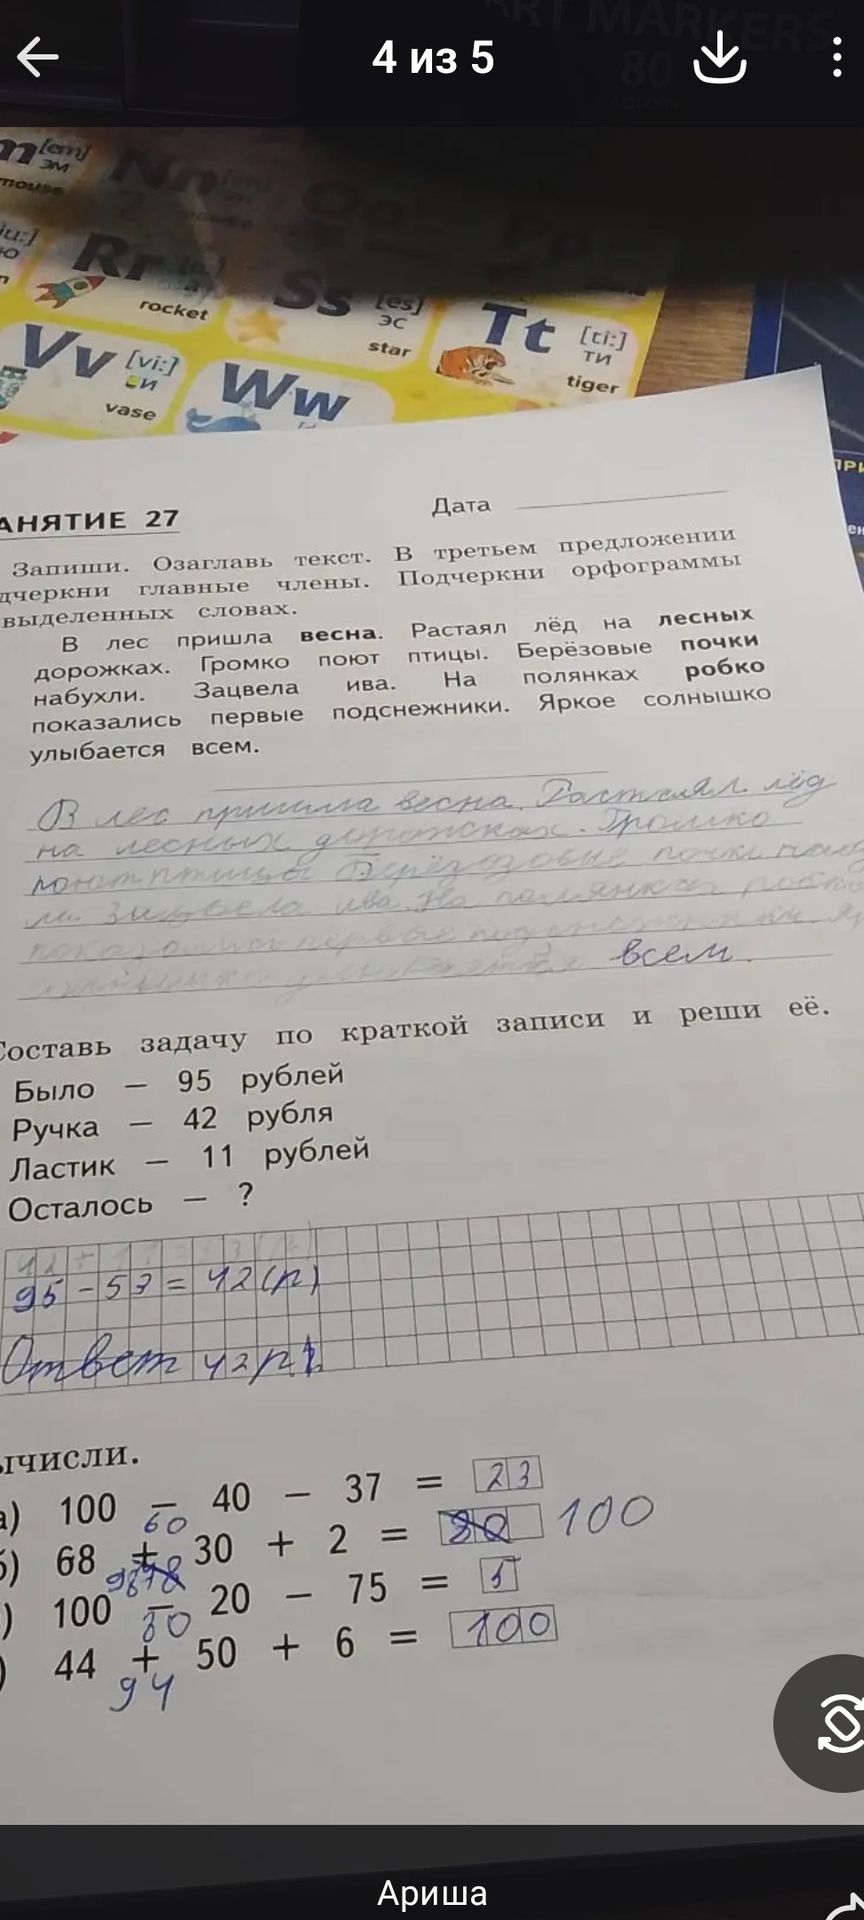 4 из 5
ART MARKERS
80
m [em]
эм
mouse
Nn
Oo
Pp
Rr
rocket
Ss [es]
эс
star
Tt [ti:]
ти
tiger
Vv [vi:]
ви
vase
Ww
АНЯТИЕ 27
Дата
Запиши. Озаглавь текст. В третьем предложении
дчеркни главные члены. Подчеркни орфограммы
выделенных словах.
В лес пришла весна. Растаял лёд на лесных
дорожках. Громко поют птицы. Берёзовые почки
набухли. Зацвела ива. На полянках робко
показались первые подснежники. Яркое солнышко
улыбается всем.
В лес пришла весна. Растаял лёд
на лесных дорожках. Громко
поют птицы Берёзозовые почки
ли Зацвела ива. На полянках робко
показались первые подснежники
улыбается всем.
Составь задачу по краткой записи и реши её.
Было — 95 рублей
Ручка — 42 рубля
Ластик — 11 рублей
Осталось — ?
95 - 53 = 42 (р)
Ответ 42 р.
ычисли.
а) 100 − 40 − 37 = 23
60
б) 68 + 30 + 2 = 100
98
) 100 − 20 − 75 = 5
80
) 44 + 50 + 6 = 100
94
Ариша